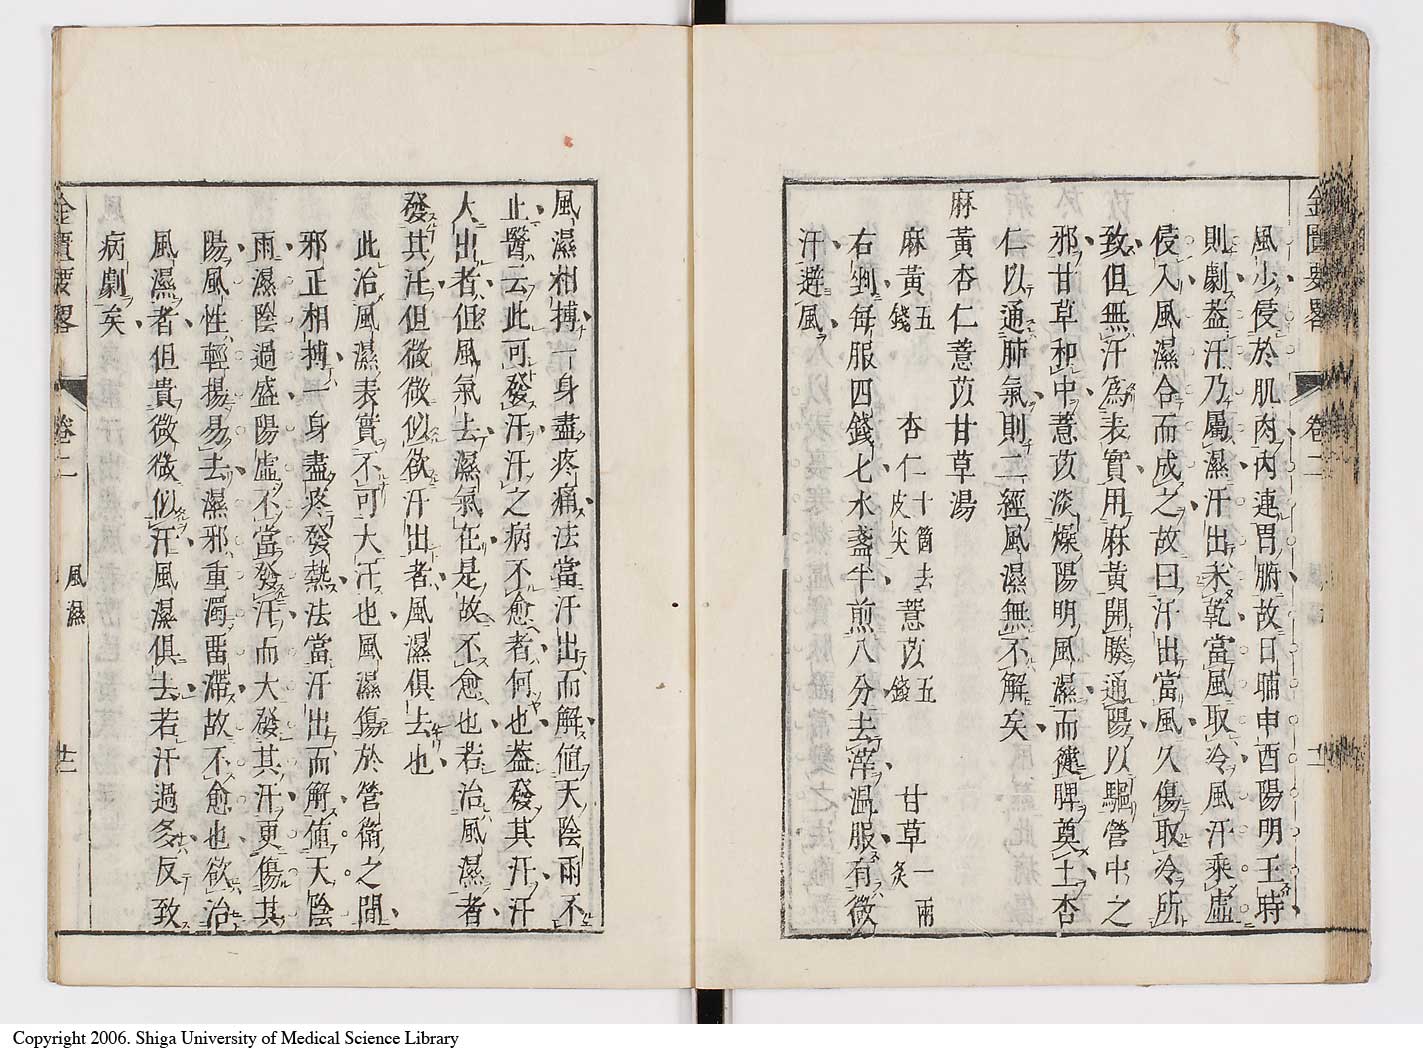 金匱要畧　卷二
風少侵於肌肉內連胃腑故日晡申酉陽明王時
則劇葢汗乃屬濕汗出未乾當風取冷風汗乘虛
侵入風濕合而成之故曰汗出當風久傷取冷所
致但無汗爲表實用麻黃開腠通陽以驅營中之
邪甘草和中薏苡淡燥陽明風濕而健脾奠土杏
仁以通肺氣則二經風濕無不解矣
麻黃杏仁薏苡甘草湯
麻黃五錢　杏仁十箇去皮尖　薏苡五錢　甘草一兩炙
右剉每服四錢七水盞半煎八分去滓溫服有微
汗避風
風濕相搏一身盡疼痛法當汗出而解値天陰雨不
止醫云此可發汗汗之病不愈者何也葢發其汗汗
大出者但風氣去濕氣在是故不愈也若治風濕者
發其汗但微微似欲汗出者風濕俱去也
此治風濕表實不可大汗也風濕傷於營衛之間
邪正相搏一身盡疼發熱法當汗出而解値天陰
雨濕陰過盛陽虛不當發汗而大發其汗更傷其
陽風性輕揚易去濕邪重濁畱滯故不愈也欲治
風濕者但貴微微似汗風濕俱去若汗過多反致
病劇矣
金匱要畧　卷二　風濕　廿二
Copyright 2006. Shiga University of Medical Science Library